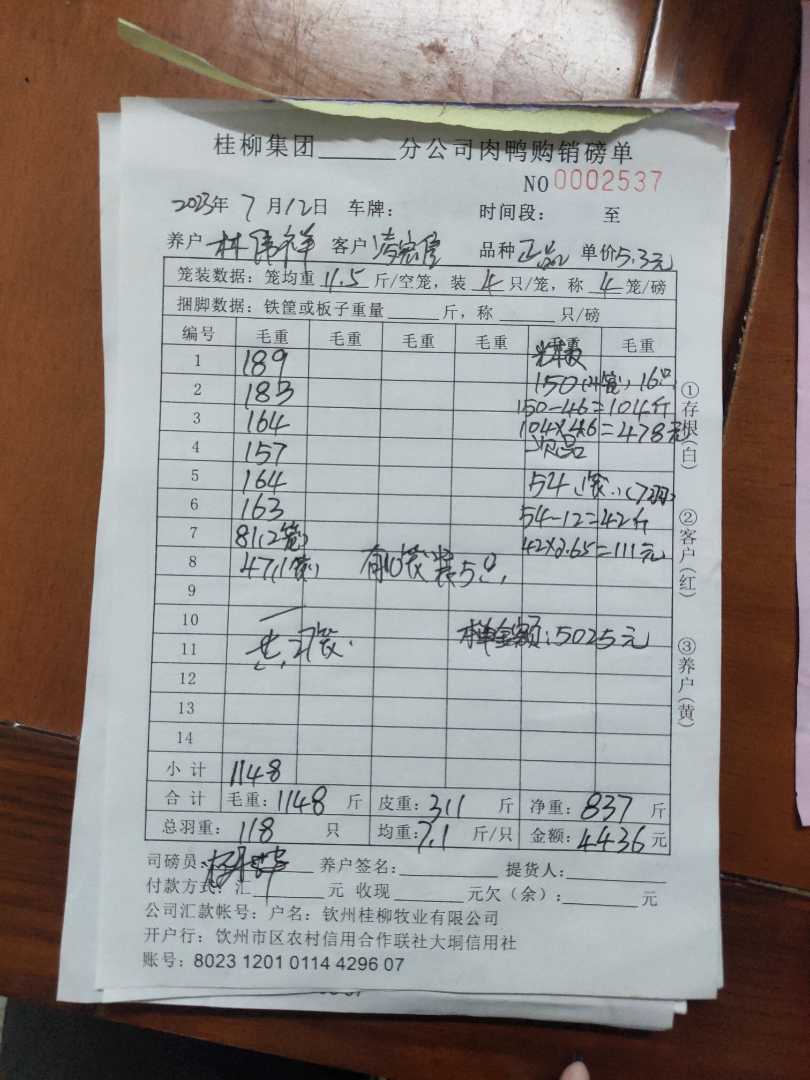 桂柳集团______分公司肉鸭购销磅单
NO 0002537
2023年 7 月 12日 车牌: 时间段: 至
养户 林伟祥 客户 品种 正品 单价 5.3元
笼装数据: 笼均重 11.5 斤/空笼, 装 4 只/笼, 称 4 笼/磅
捆脚数据: 铁筐或板子重量______斤, 称______只/磅
编号 毛重 毛重 毛重 毛重 毛重 毛重
1 189
2 183 150(4笼) 16只
150-46=104斤
3 164 104×4.6=478元
4 157 次品
5 164 54 1笼 (7羽)
6 163 54-12=42斤
7 81(2笼) 42×2.65=111元
8 47(1笼) 有10笼装5只
9
10
11 共27笼. 本单金额: 5025元
12
13
14
小计 1148
合计 毛重: 1148 斤 皮重: 311 斤 净重: 837 斤
总羽重: 118 只 均重: 7.1 斤/只 金额: 4436 元
司磅员: 养户签名: 提货人:
付款方式: 汇______元 收现______元欠(余):______元
公司汇款帐号: 户名: 钦州桂柳牧业有限公司
开户行: 钦州市区农村信用合作联社大垌信用社
账号: 8023 1201 0114 4296 07
①存根(白)
②客户(红)
③养户(黄)